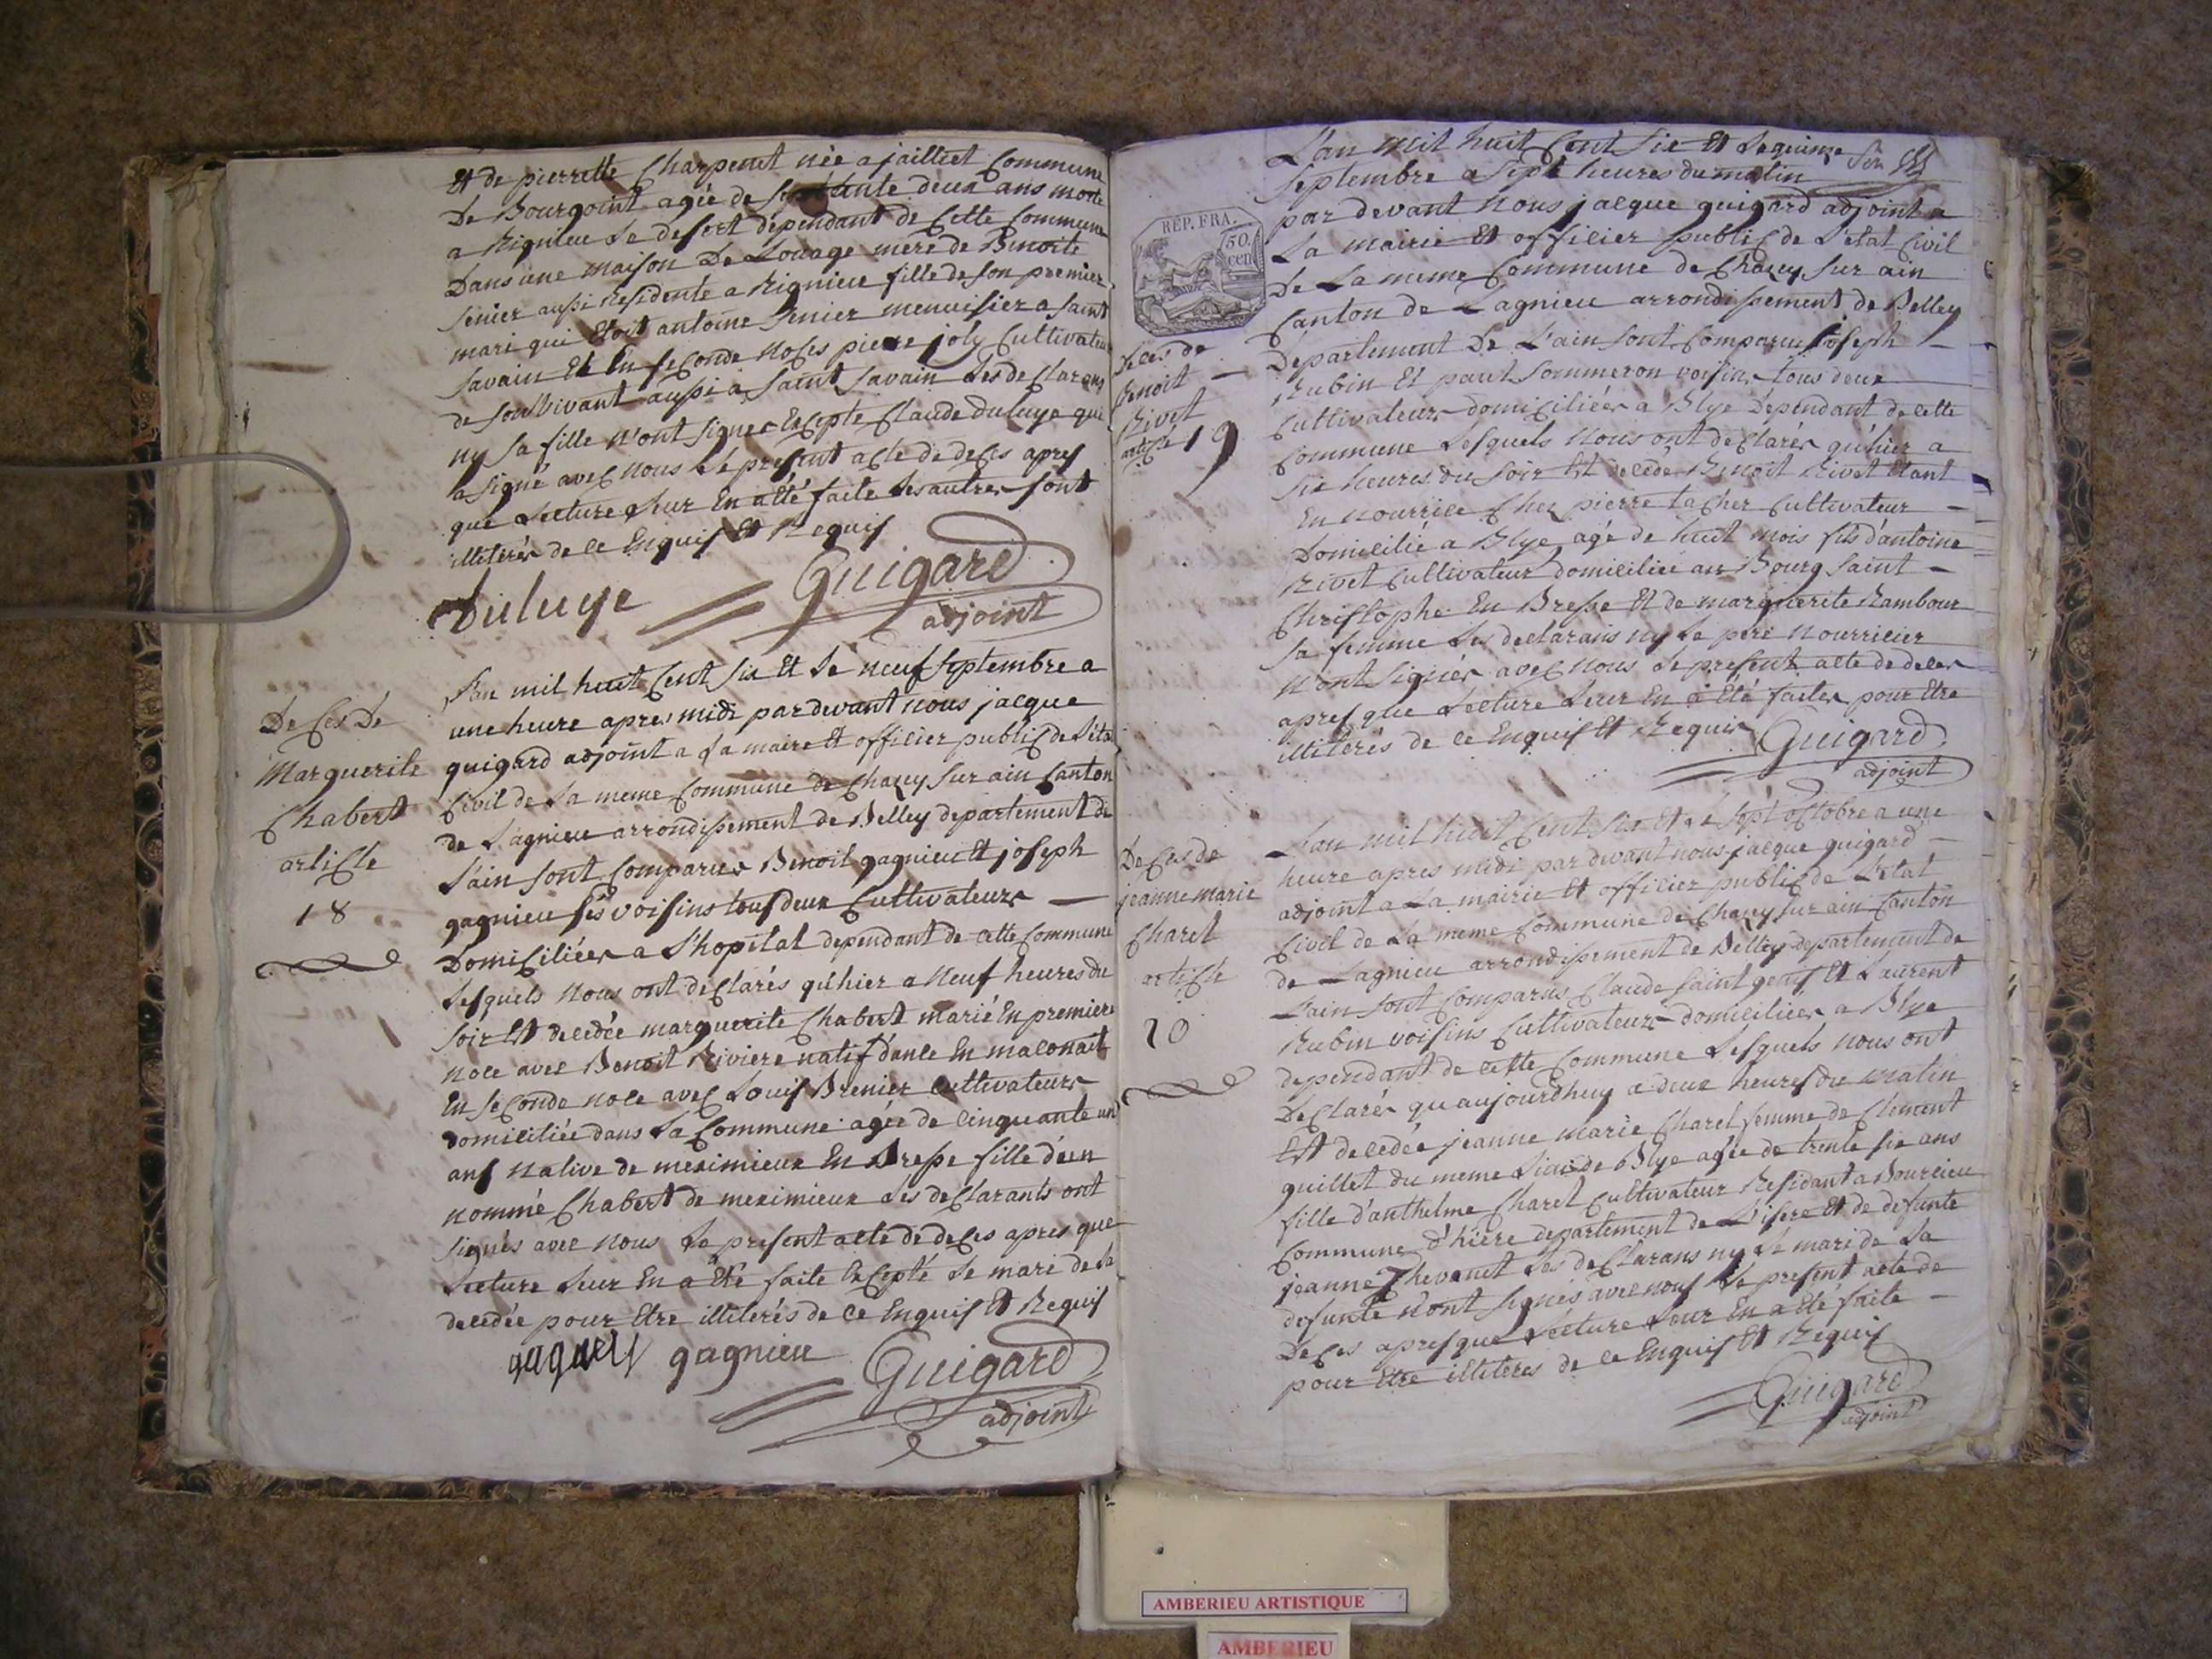 Et de pierrette Charpenet née a jaillet Commune
De Bourgoint agée de deux ans morte
a Rignieu Le desert dépendant de Cette Commune
Dans une maison De Louage mere de Benoite
Senier aussi Residente a Rignieu fille de son premier
mari qui Etoit antoine Senier menuisier a Saint
Savain Et En seConde noCes pierre joly Cultivateur
de son Vivant aussi a Saint Savain Les deClarans
ny sa fille n'ont signer Excepté Claude Duluye qui
a signé avec nous Le present acte de deCes apres
que Lecture Leur En a Eté faite Les autres sont
illiterés de Ce Enquis Et Requis
Duluye Guigard
adjoint
DeCes De
Marguerite
Chabert
artiCle
18
L'an mil huit Cent Six Et Le neuf Septembre a
une heure apres midi pardevant nous jacque
guigard adjoint a La maire Et officier public de L'etat
Civil de La meme Commune de Chazey sur ain Canton
de Lagnieu arrondissement de Belley departement de
L'ain sont Comparus Benoit gagnieu Et joseph
gagnieu ses voisins tous deux Cultivateurs
DomiCiliées a L'hopital dependant de Cette Commune
Lesquels nous ont deClarés qu'hier a neuf heures du
soir Est deCedée marguerite Chabert marié En premiere
noCe avec Benoit Riviere natif En maconait
En seConde noCe avec Louis Brenier Cultivateurs
domiCiliée dans La Commune agée de Cinquante un
ans native de meximieux En Bresse fille d'un
nommé Chabert de meximieux Les deClarants ont
signés avec nous Le present acte de deCes apres que
Lecture Leur En a Eté faite Excepté Le mari de La
deCedée pour Etre illiterés de Ce Enquis Et Requis
gagnieu Guigard
adjoint
L'an Mil huit Cent Six Et Le quinze
Septembre a Sept heures du matin
par devant Nous jacque guigard adjoint a
La mairie Et officier public de L'etat Civil
De La meme Commune de Chazey sur ain
Canton de Lagnieu arrondissement de Belley
Département De L'ain sont Comparus Joseph
Rubin Et paul Sommeron voisins tous deux
Cultivateurs domiciliées a Blye Dependant de cette
Commune Lesquels Nous ont deClarés qu'hier a
Six heures du Soir Est deCedé Benoit Rivet Etant
En nourrice Chez pierre taCher Cultivateur
Domicilié a Blye agé de huit mois fils d'antoine
Rivet Cultivateur domicilié au Bourg Saint
Christophe En Bresse Et de marguerite Rambour
Sa femme Les declarans ny Le pere nourricier
N'ont signiés avec nous Le present acte de deces
apres que Lecture Leur En a Eté faites pour Etre
illiterés de Ce Enquis Et Requis Guigard
adjoint
REP. FRA.
50.
cen
deces de
Benoit
Rivet
article 19
DeCes de
jeanne marie
Charel
artiCle
20
L'an mil huit Cent Six Et Le Sept oCtobre a une
heure apres midi par devant nous jacque guigard
adjoint a La mairie Et officier public de L'etat
Civil de La meme Commune de Chazey sur ain Canton
de Lagnieu arrondissement de Belley departement de
L'ain sont Comparus Claude Saint Et Laurent
Rubin voisins Cultivateurs domiciliées a Blye
dependant de Cette Commune Lesquels nous ont
DeClarés qu aujourdhuy a deux heures du matin
Est deCedée jeanne marie Charel femme de Clement
quillet du meme Lieu de Blye agée de trente Six ans
fille d'anthelme Charel Cultivateur Residant a Bourcieu
Commune d'hiere departement de L'isere Et de defunte
jeanne Thevenet Les deClarans ny Le mari de La
defunte n'ont signés avec nous Le present acte de
DeCes apres que Lecture Leur En a Eté faite
pour Etre illiterés de Ce Enquis Et Requis
Guigard
adjoint
AMBERIEU ARTISTIQUE
AMBERIEU